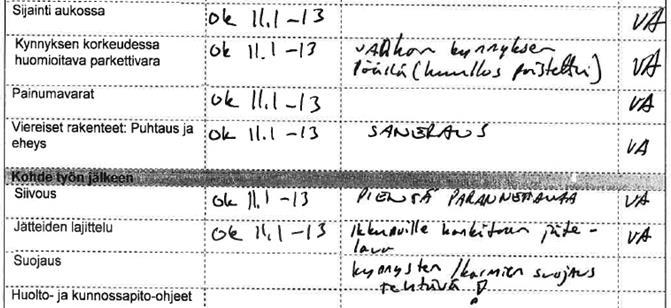 Sijainti aukossa ok 11.1-13 VA
Kynnyksen korkeudessa ok 11.1-13 vanhan kynnyksen VA
huomioitava parkettivara päällä ( poistettu)
Painumavarat ok 11.1-13 VA
Viereiset rakenteet: Puhtaus ja ok 11.1-13 SANERAUS VA
eheys
Kohde työn jälkeen
Siivous ok 11.1-13 PIENTÄ PARANNETTAVAA VA
Jätteiden lajittelu ok 11.1-13 Ikkunoille hankitaan jäte- VA
lava
Suojaus kynnysten / karmien suojaus
tehtävä !
Huolto- ja kunnossapito-ohjeet